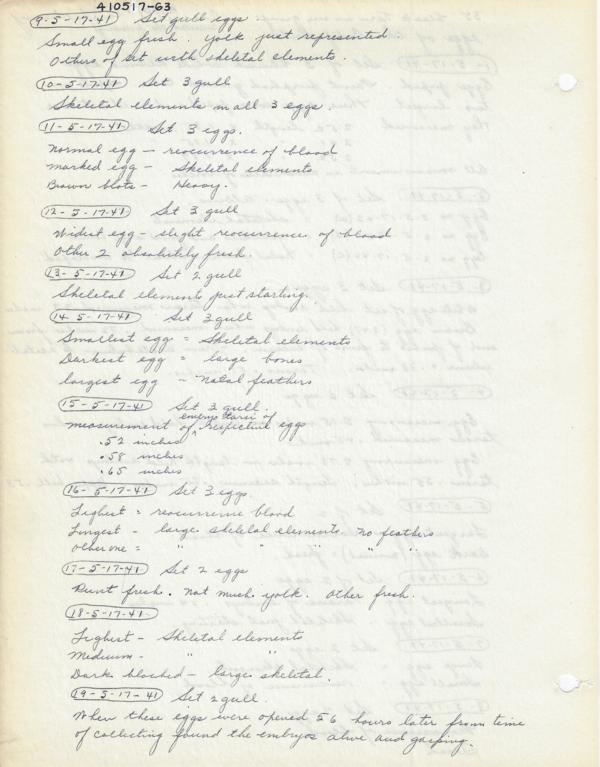 410517-63
9-5-17-41 Set gull eggs
Small egg fresh. yolk just represented.
Others of set with skeletal elements.
10-5-17-41 Set 3 gull
Skeletal elements in all 3 eggs.
11-5-17-41 Set 3 eggs.
Normal egg - reocurrence of blood
marked egg - Skeletal elements
Brown blots - Heavy.
12-5-17-41 Set 3 gull
Widest egg - slight reocurrence of blood
Other 2 absolutely fresh.
13-5-17-41 Set 2 gull
Skeletal elements just starting.
14-5-17-41 Set 3 gull
Smallest egg = Skeletal elements
Darkest egg = large bones
largest egg - Natal feathers
15-5-17-41 Set 3 gull.
measurement of embryo tarsi of respective eggs
.52 inches
.58 inches
.65 inches
16-5-17-41 Set 3 eggs
Lighest = reocurrence blood
Longest - large skeletal elements. No feathers
Other one = " " " "
17-5-17-41 Set 2 eggs
Runt fresh. Not much yolk. Other fresh.
18-5-17-41
Lighest - Skeletal elements
Medium - " "
Dark bloched - large skeletal.
19-5-17-41 Set 2 gull.
When these eggs were opened 56 hours later from time
of collecting found the embryos alive and gasping.